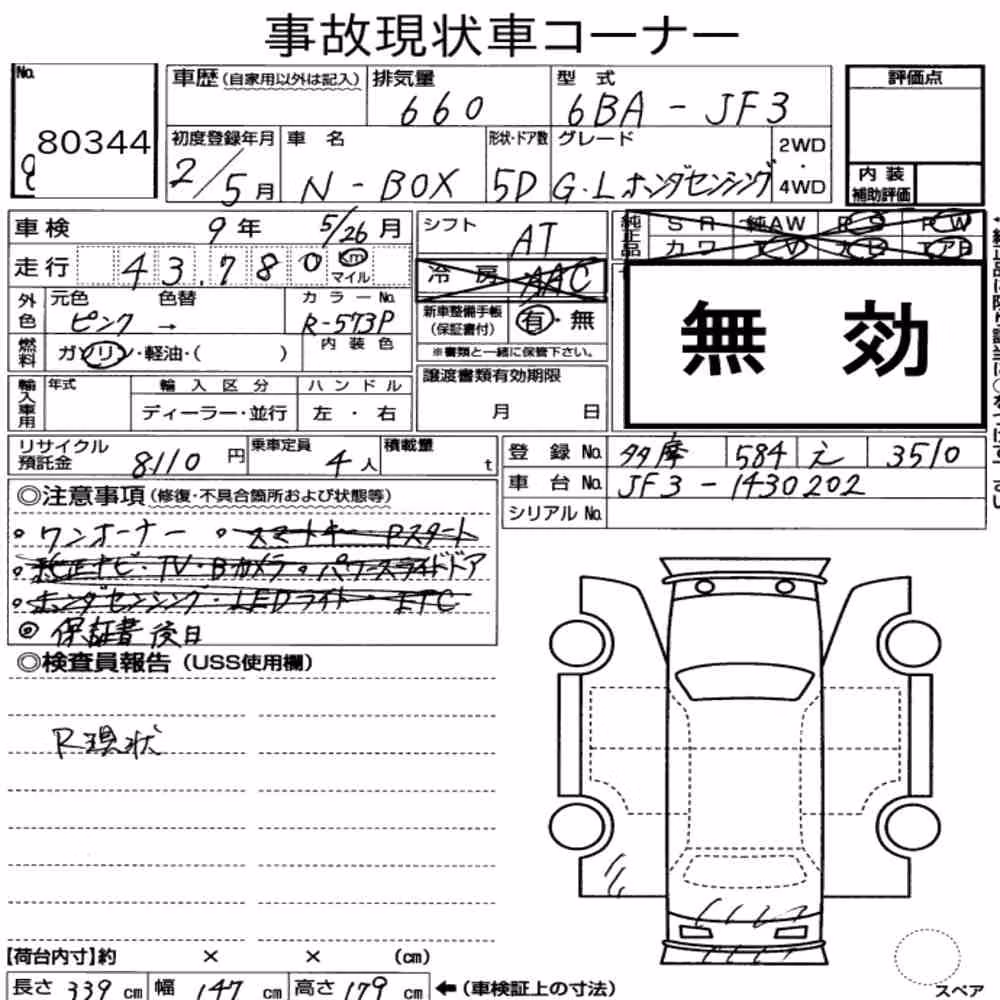 事故現状車コーナー
No. 80344
車歴(自家用以外は記入) 排気量 660 型式 6BA-JF3 評価点
初度登録年月 2/5月 車名 N-BOX 形状・ドア数 5D グレード G・Lホンダセンシング 2WD・4WD
内装補助評価
車検 9年 5/26月 シフト AT 純正品 SR 純AW PS PW
走行 43,780 km マイル 冷房 AAC カワ TV ナビ エアB
外色 元色 ピンク 色替 → カラーNo. R-573P 新車整備手帳(保証書付) 有・無
内装色 ※書類と一緒に保管下さい。
無効
燃料 ガソリン・軽油・( )
輸入車用 年式 輸入区分 ハンドル 譲渡書類有効期限
ディーラー・並行 左・右 月 日
リサイクル預託金 8110円 乗車定員 4人 積載量 t 登録No. 多摩 584 え 3510
車台No. JF3-1430202
◎注意事項(修復・不具合箇所および状態等) シリアルNo.
・ワンオーナー ・スマートキー Pスタート
・純正ナビ・TV・Bカメラ・パワースライドドア
・ホンダセンシング・LEDライト・ETC
◎保証書後日
◎検査員報告(USS使用欄)
R現状
【荷台内寸】約 × × (cm)
長さ 339 cm 幅 147 cm 高さ 179 cm ←(車検証上の寸法)
スペア